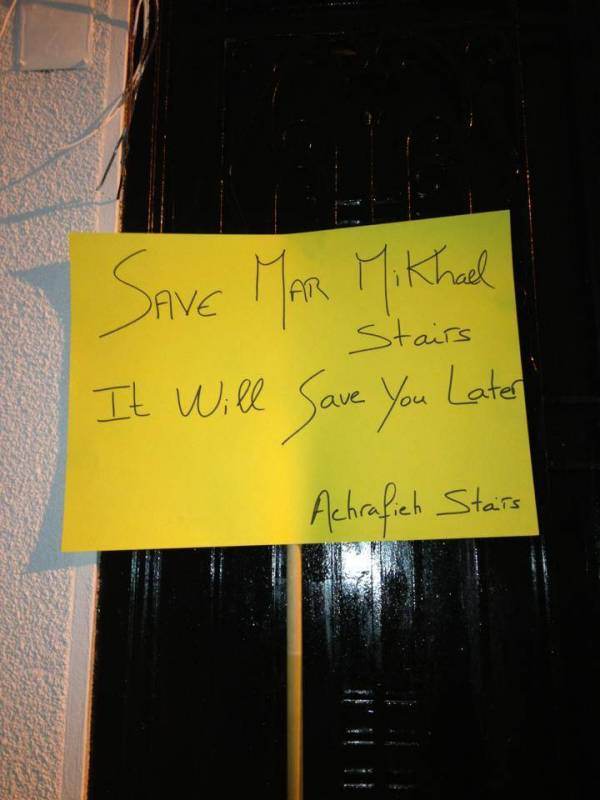 SAVE MAR MiKhael
Stairs
It Will Save You Later
Achrafieh Stairs